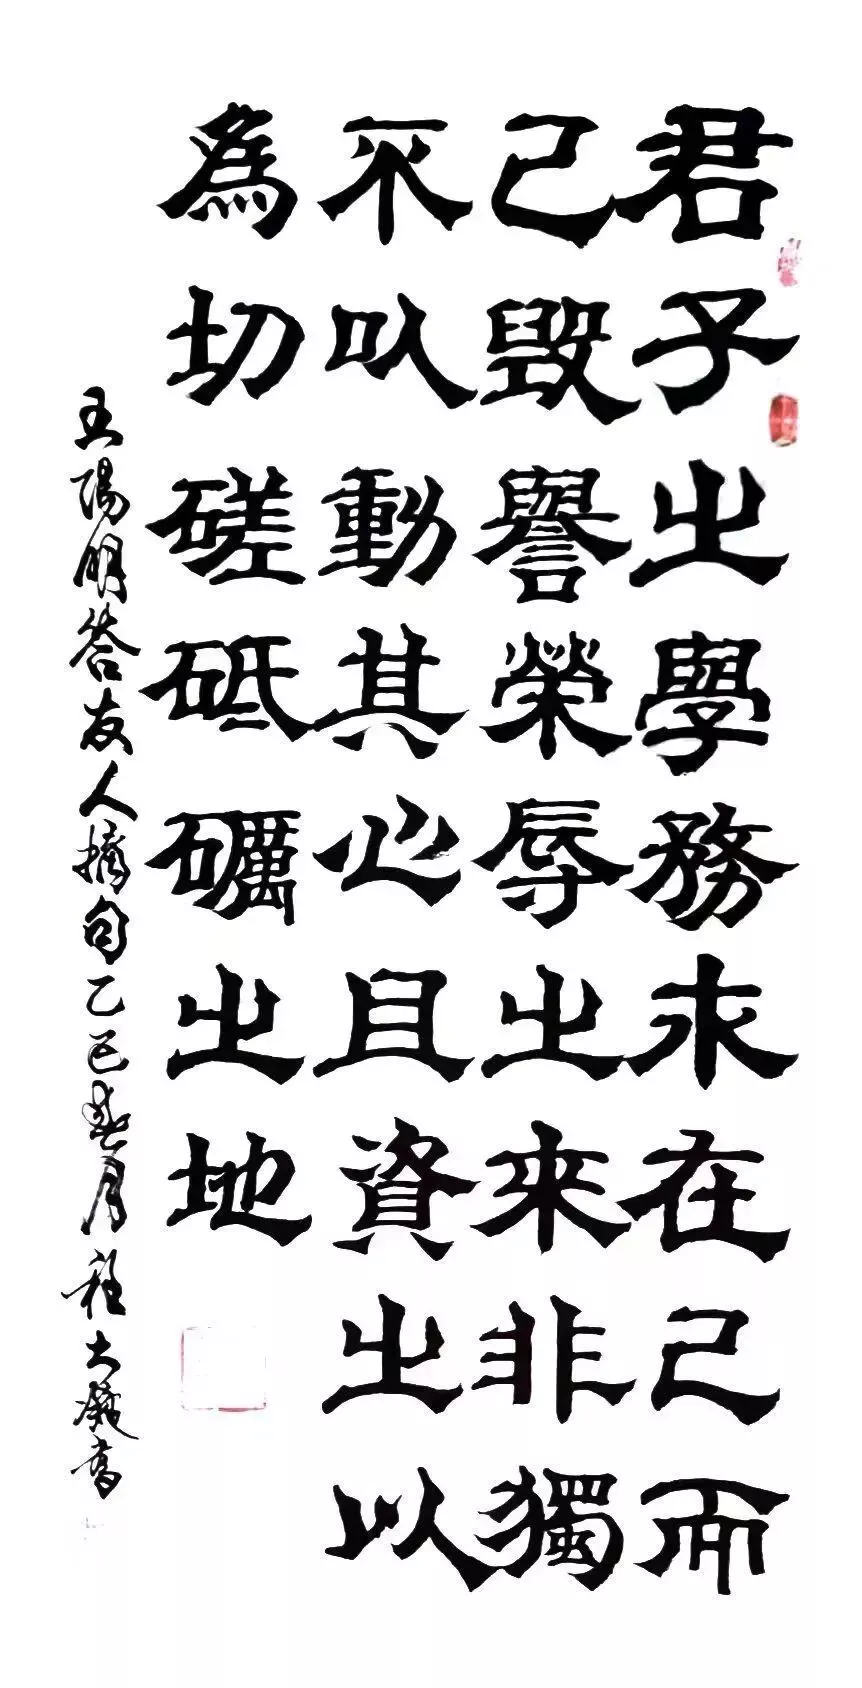 君子之學務求在己而
已毀譽榮辱之來非獨
不以動其心且資之以
為切磋砥礪之地
王陽明答友人摘句乙巳春月程大書